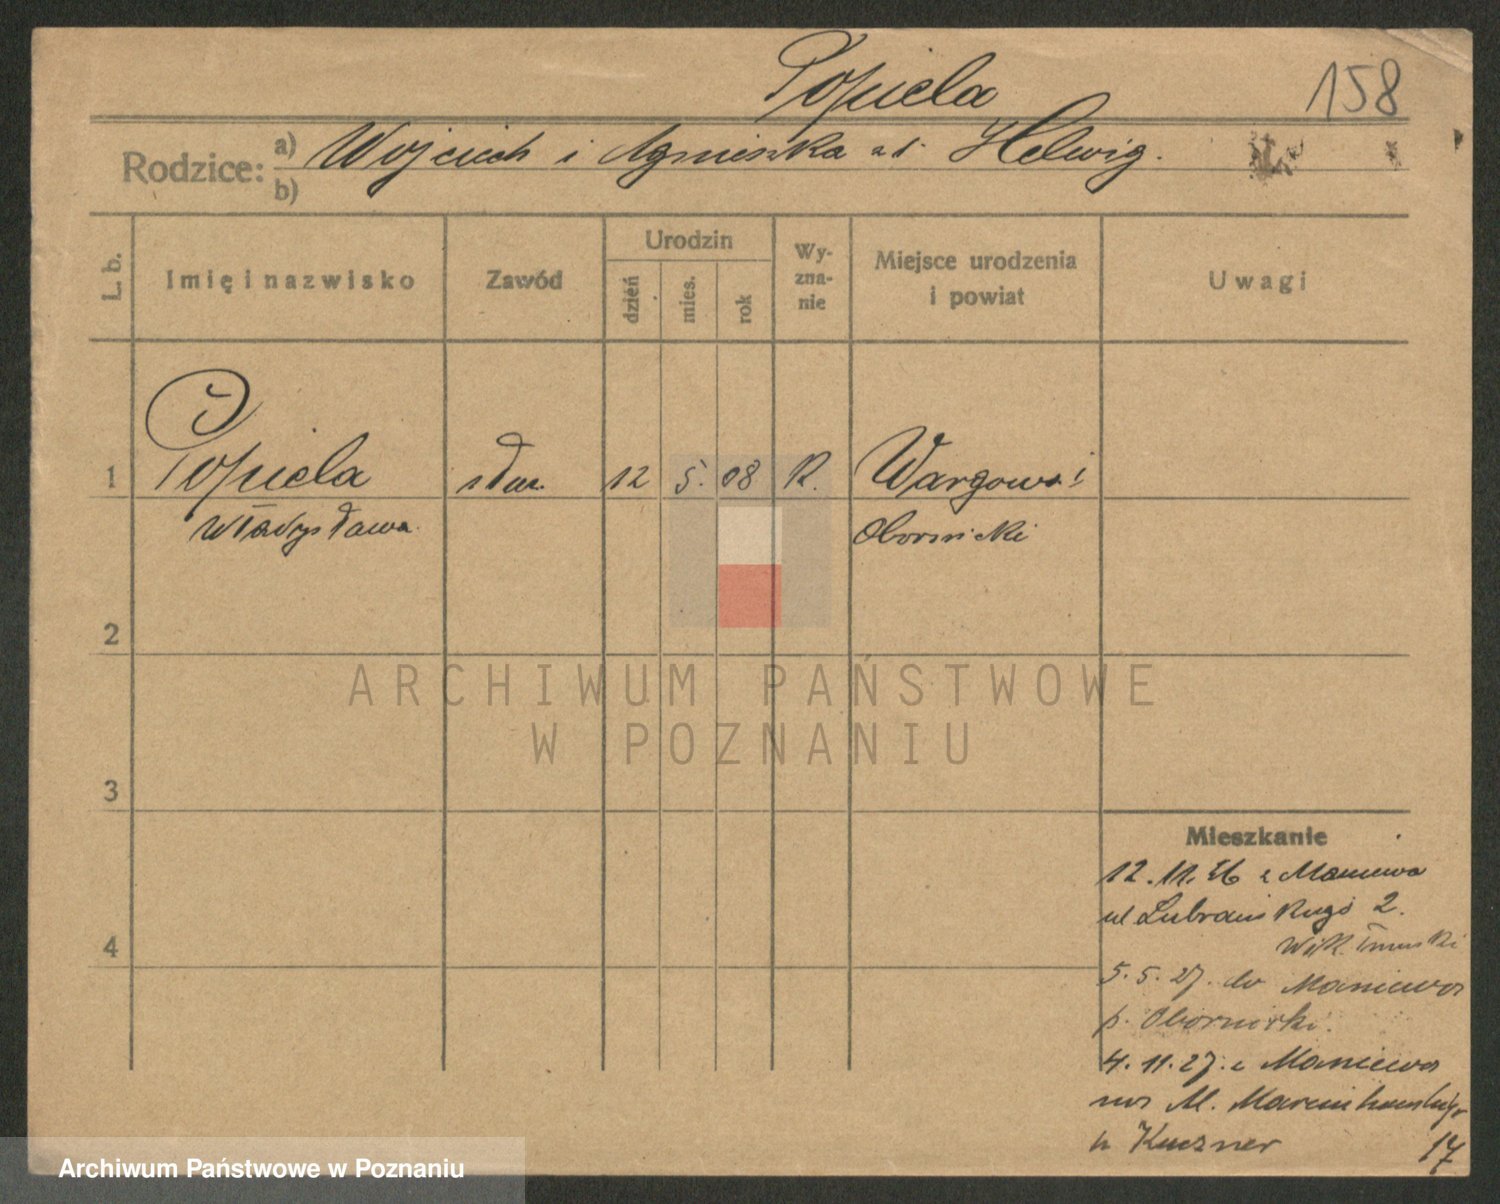 Popiela
158
Rodzice: a) Wojciech i Agnieszka z d. Helwig.
b)
L. b.
Imię i nazwisko
Zawód
Urodzin
dzień
mies.
rok
Wy-
zna-
nie
Miejsce urodzenia
i powiat
Uwagi
1 Popiela służ. 12 5. 08 R.
Władysława. Obornicki
2
ARCHIWUM PAŃSTWOWE
W POZNANIU
3
Mieszkanie
12. 11. 26 z Maniewa
ul Lubrańskiego 2.
4
5. 5. 27. do Maniewa
p. Obornicki.
4. 11. 27. z Maniewa
na M. Marcinkowskiego
u Kuczner 17
Archiwum Państwowe w Poznaniu